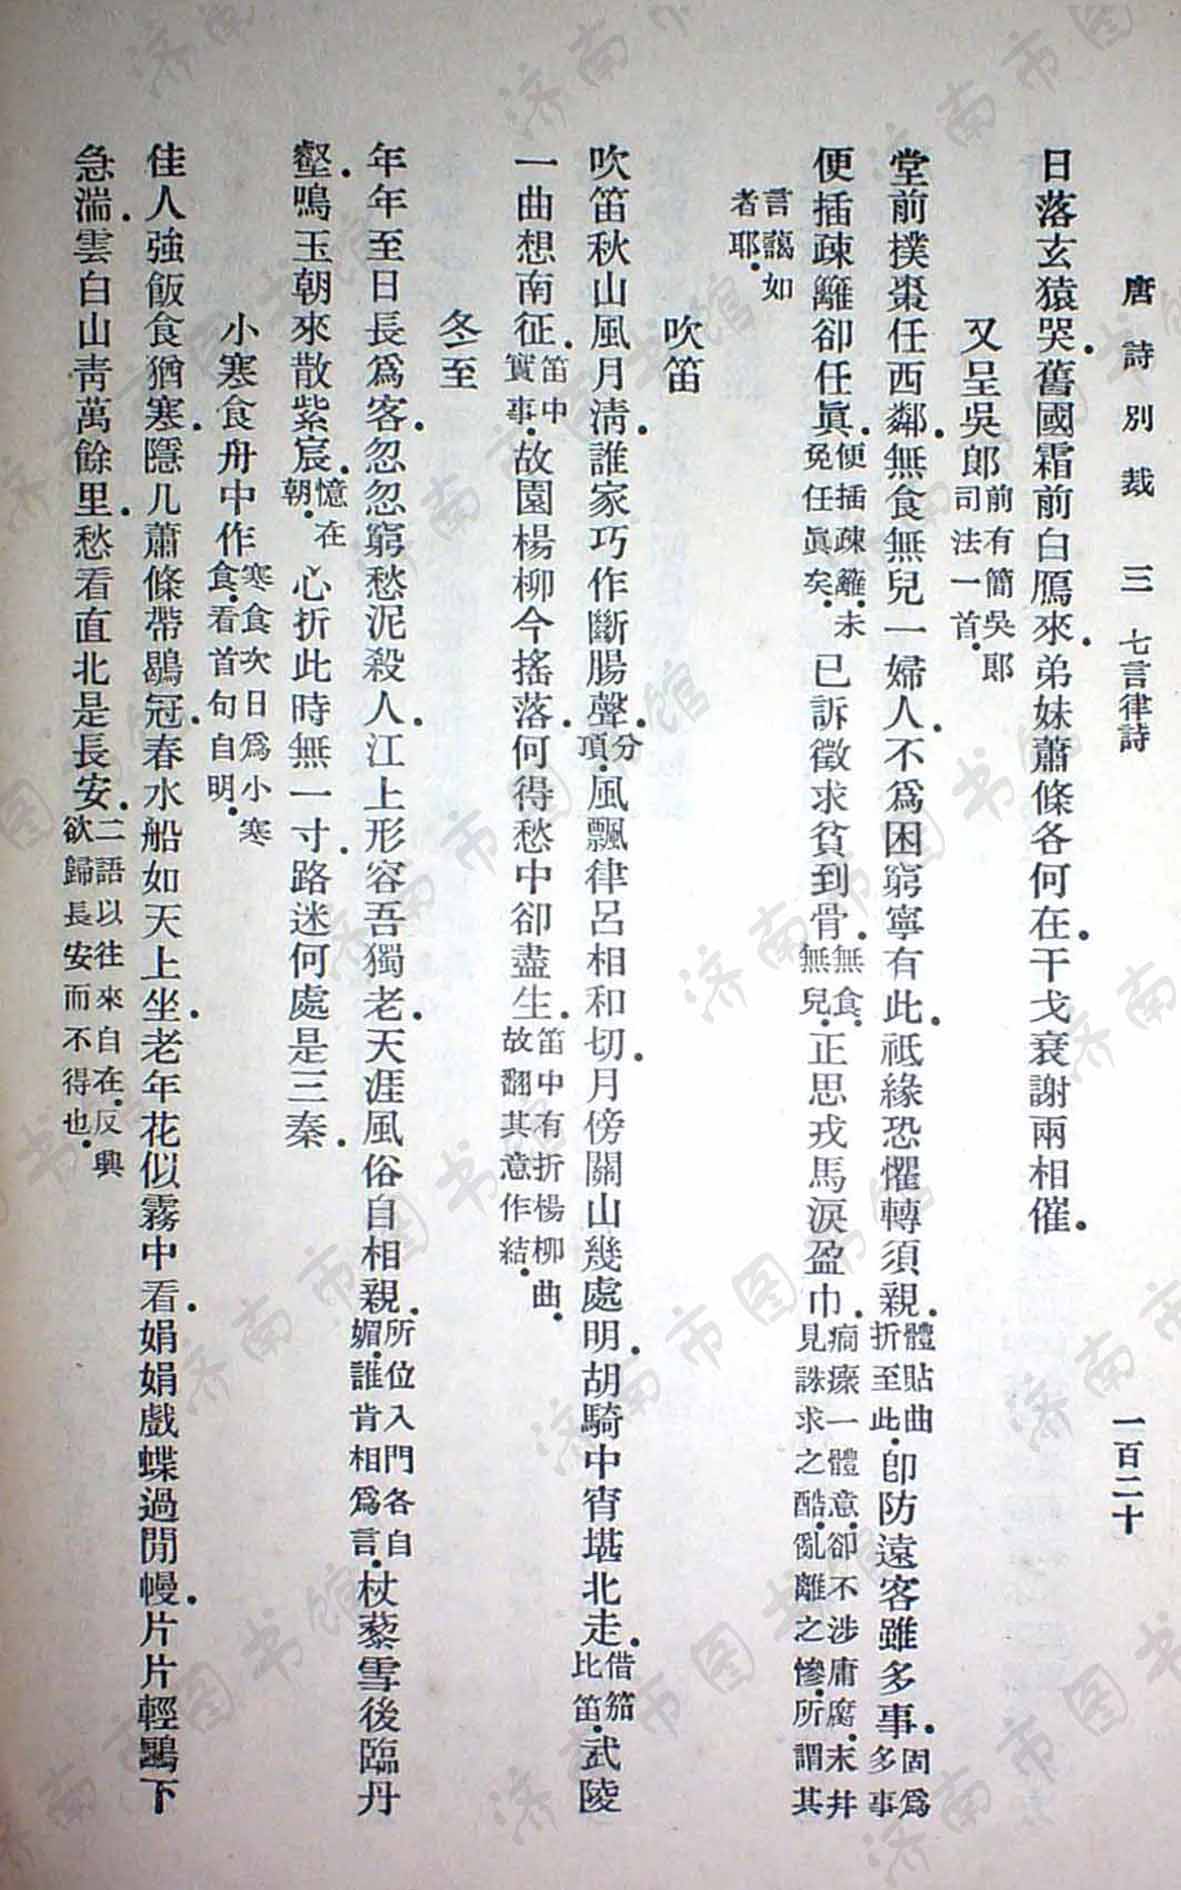 唐詩別裁 三 七言律詩 一百二十
日落玄猿哭。舊國霜前白鴈來。弟妹蕭條各何在。干戈衰謝兩相催。
又呈吳郎 前有簡吳郎司法一首。
堂前撲棗任西鄰。無食無兒一婦人。不爲困窮寧有此。祇緣恐懼轉須親。體貼曲折至此。卽防遠客雖多事。固爲多事
便插疎籬卻任眞。便插疎籬。未免任眞矣。已訴徵求貧到骨。無食。無兒。正思戎馬淚盈巾。痌瘝一體意。卻不涉庸腐。末井見誅求之酷。亂離之慘。所謂其
言藹如者耶。
吹笛
吹笛秋山風月淸。誰家巧作斷腸聲。分項。風飄律呂相和切。月傍關山幾處明。胡騎中宵堪北走。借笳比笛。武陵
一曲想南征。笛中實事。故園楊柳今搖落。何得愁中卻盡生。笛中有折楊柳曲。故翻其意作結。
冬至
年年至日長爲客。忽忽窮愁泥殺人。江上形容吾獨老。天涯風俗自相親。所位入門各自媚。誰肯相爲言。杖藜雪後臨丹
壑。鳴玉朝來散紫宸。憶在朝。心折此時無一寸。路迷何處是三秦。
小寒食舟中作 寒食次日爲小寒食。看首句自明。
佳人強飯食猶寒。隱几蕭條帶鶡冠。春水船如天上坐。老年花似霧中看。娟娟戲蝶過閒幔。片片輕鷗下
急湍。雲白山靑萬餘里。愁看直北是長安。二語以往來自在。反興欲歸長安而不得也。